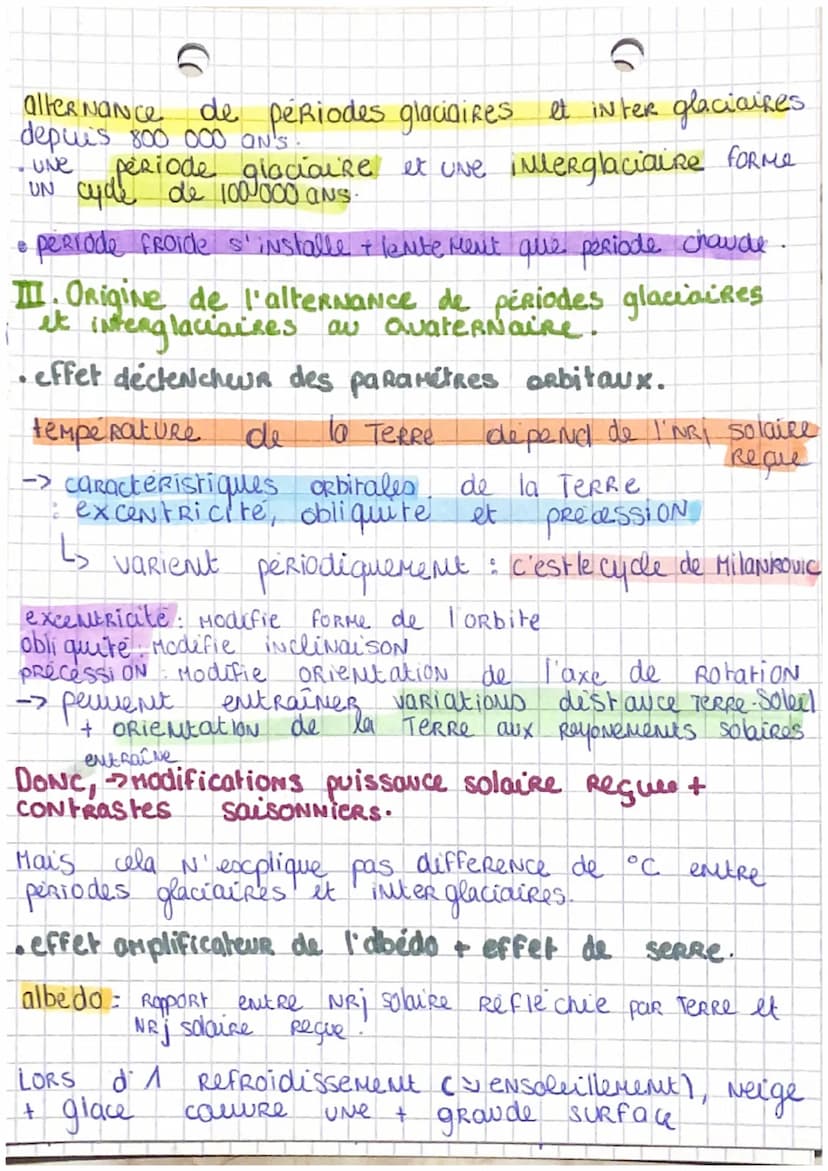 alternance de périodes glaciaires et inter glaciaires
depuis 800 000 ans.
. une période glaciaire et une interglaciaire forme
un cycle de 100 000 ans.
• période froide s'installe + lentement que période chaude.
III. Origine de l'alternance de périodes glaciaires
et interglaciaires au Quaternaire.
. effet déctencheur des paramètres orbitaux.
température de la Terre dépend de l'NRj solaire
reçue
-> caractéristiques orbitales de la Terre
: excentricité, obliquité et précession
↳ varient périodiquement : c'est le cycle de Milankovic
excentricité : modifie forme de l'orbite
obliquité : modifie inclinaison
précession : modifie orientation de l'axe de rotation
-> peuvent entraîner variations distance Terre-Soleil
+ orientation de la Terre aux rayonements solaires
entraîne
Donc, -> modifications puissance solaire reçues +
contrastes saisonniers.
Mais cela n'excplique pas différence de °C entre
périodes glaciaires et inter glaciaires.
. effet amplificateur de l'albédo + effet de serre.
albédo : rapport entre NRj solaire réfléchie par Terre et
NRj solaire reçue.
Lors d'1 refroidissement (↘ ensoleillement), neige
+ glace couvre une + grande surface